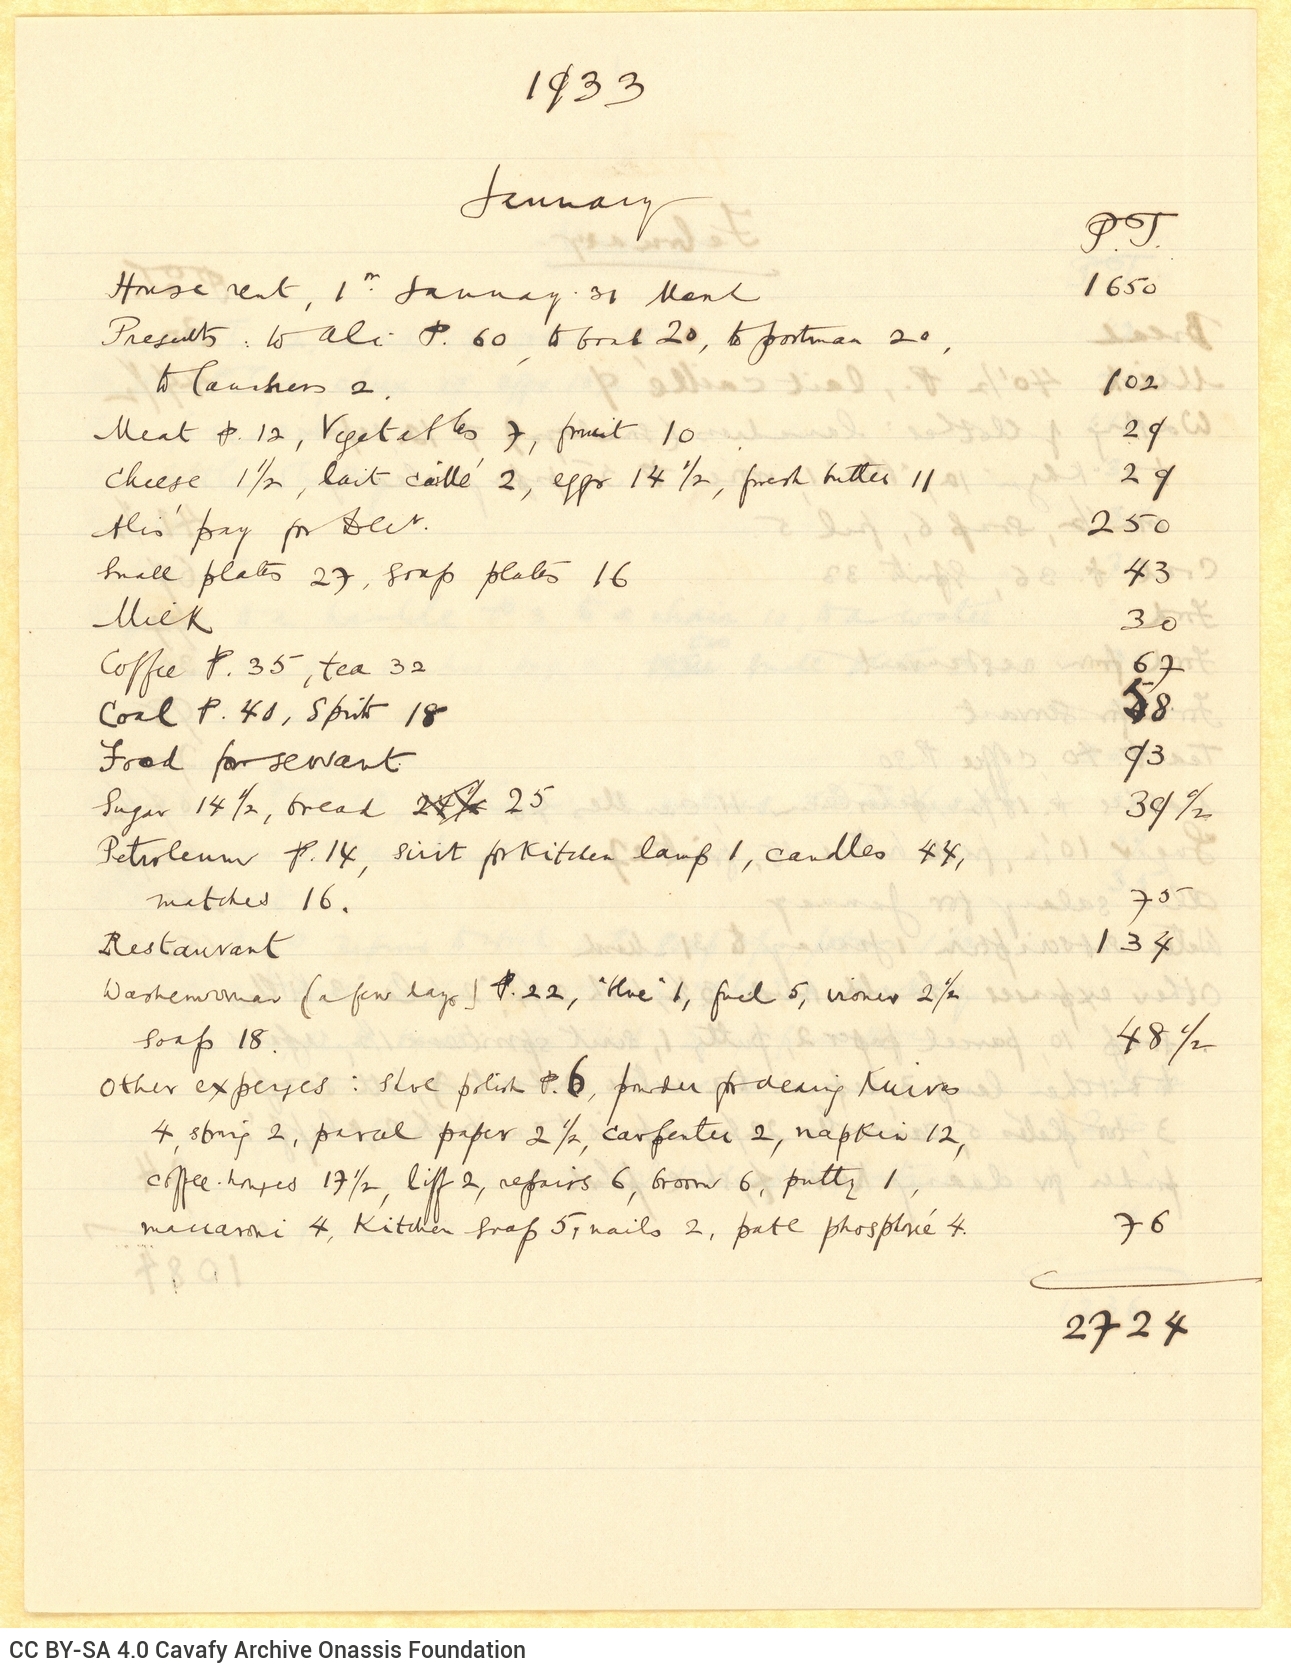 1933
January
P.T.
House rent, 1st January - 31 March 1650
Presents : to Ali P. 60, to boab 20, to postman 20,
to 2. 102
Meat P. 12, Vegetables 7, fruit 10 29
Cheese 1 1/2, lait caillé 2, eggs 14 1/2, fresh butter 11 29
Alis' pay for Decr. 250
Small plates 27, soup plates 16 43
Milk 30
Coffee P. 35, tea 32 67
Coal P. 40, Spirit 18 58
Food for servant 93
Sugar 14 1/2, bread 25 39 1/2
Petroleum P. 14, spirit for Kitchen lamp 1, candles 44,
matches 16. 75
Restaurant 134
Washerwoman (a few days) P. 22, "blue" 1, fuel 5, ironer 2 1/2
soap 18. 48 1/2
Other expenses : shoe polish P. 6, powder for cleaning Knives
4, string 2, parcel paper 2 1/2, carpenter 2, napkin 12,
coffee-houses 17 1/2, lift 2, repairs 6, broom 6, putty 1,
maccaroni 4, Kitchen soap 5, nails 2, pate phosphoré 4. 76
2724
CC BY-SA 4.0 Cavafy Archive Onassis Foundation